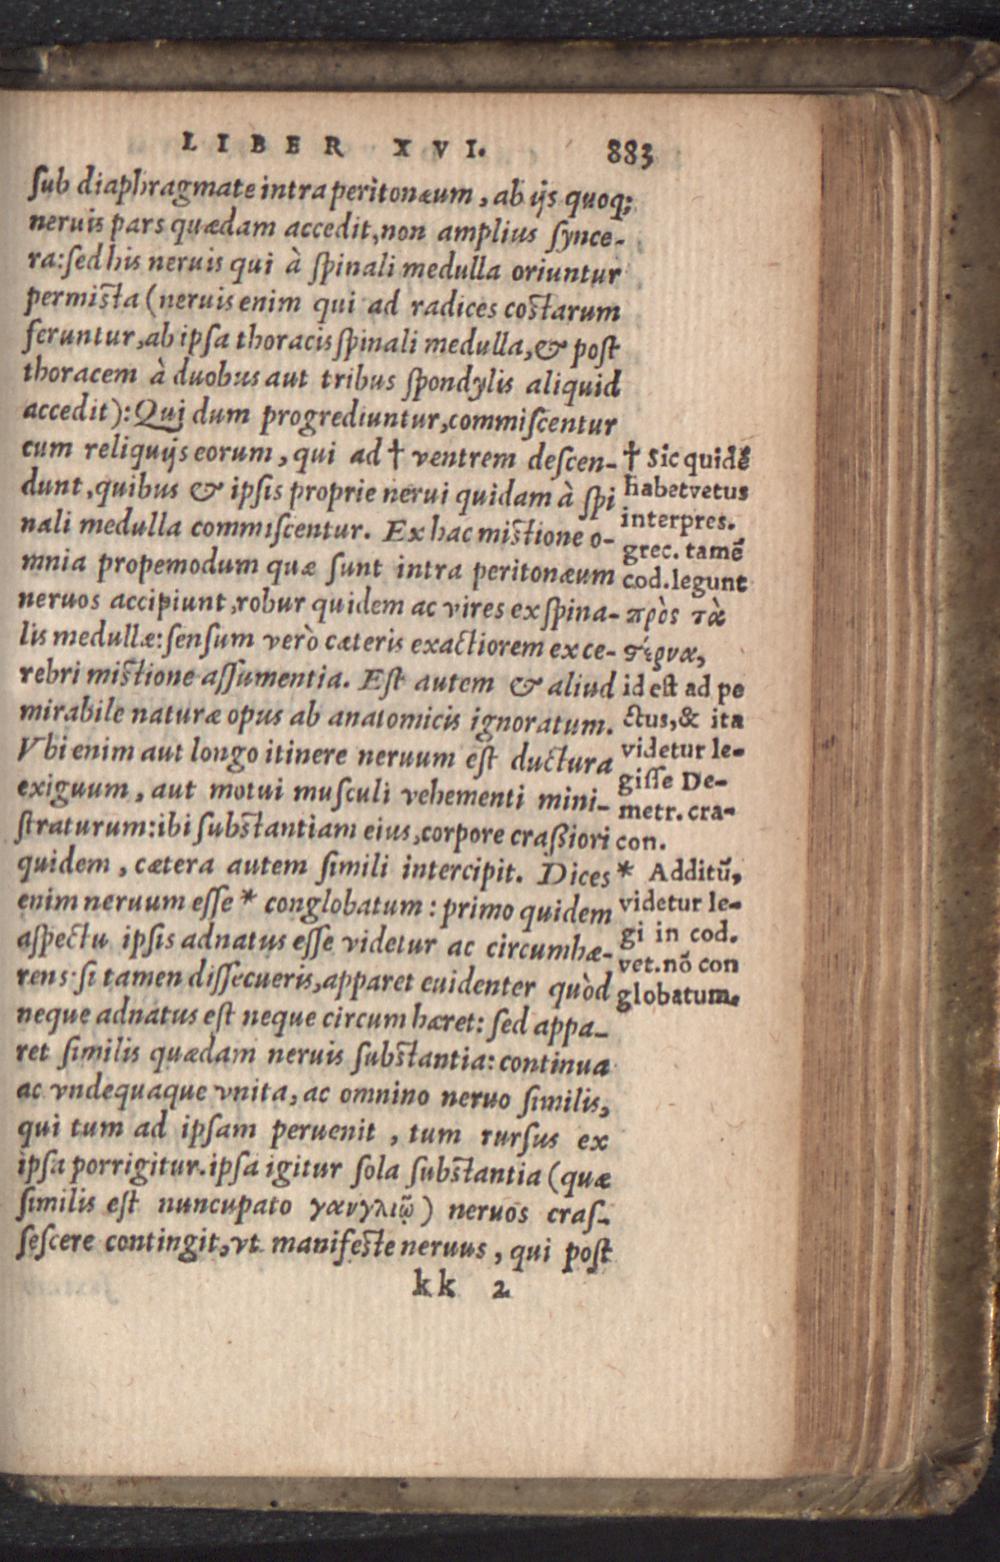 LIBER XVI. 883
sub diaphragmate intra peritonæum, ab ijs quoq;
neruis pars quædam accedit, non amplius synce-
ra: sed his neruis qui à spinali medulla oriuntur
permista (neruis enim qui ad radices costarum
feruntur, ab ipsa thoracis spinali medulla, & post
thoracem à duobus aut tribus spondylis aliquid
accedit): Qui dum progrediuntur, commiscentur
cum reliquijs eorum, qui ad † ventrem descen-
dunt, quibus & ipsis proprie nerui quidam à spi
nali medulla commiscentur. Ex hac mistione o-
mnia propemodum quæ sunt intra peritonæum
neruos accipiunt, robur quidem ac vires ex spina-
lis medullæ: sensum verò cæteris exactiorem ex ce-
rebri mistione assumentia. Est autem & aliud
mirabile naturæ opus ab anatomicis ignoratum.
Vbi enim aut longo itinere neruum est ductura
exiguum, aut motui musculi vehementi mini-
straturum: ibi substantiam eius, corpore crassiori
quidem, cætera autem simili intercipit. Dices
enim neruum esse * conglobatum: primo quidem
aspectu ipsis adnatus esse videtur ac circumhæ-
rens: si tamen dissecueris, apparet euidenter quòd
neque adnatus est neque circum hæret: sed appa-
ret similis quædam neruis substantia: continua
ac vndequaque vnita, ac omnino neruo similis,
qui tum ad ipsam peruenit, tum rursus ex
ipsa porrigitur. ipsa igitur sola substantia (quæ
similis est nuncupato γαγγλίῳ) neruos cras-
sescere contingit, vt manifeste neruus, qui post
kk 2
† Sic quidẽ
habet vetus
interpres.
grec. tamẽ
cod. legunt
πρὸς τὰ
στέρνα,
id est ad pe
ctus, & ita
videtur le-
gisse De-
metr. cra-
con.
* Additũ,
videtur le-
gi in cod.
vet. nõ con
globatum.